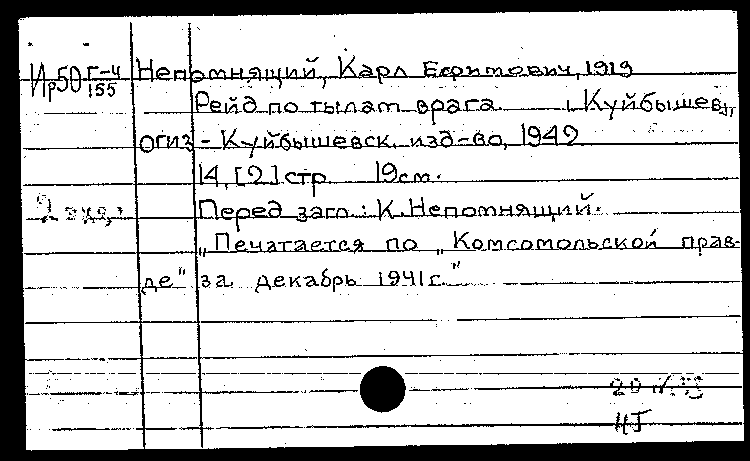 Ир50 Г-4/155 Непомнящий, Карл Ефимович, 1919
Рейд по тылам врага. Куйбышев,
огиз - Куйбышевск. изд-во, 1942
14, [2] стр 19 см.
2 экз. Перед загл.: К. Непомнящий.
„Печатается по „Комсомольской прав-
де" за декабрь 1941 г."